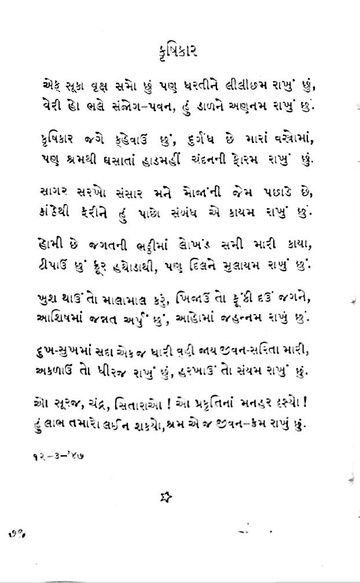 કૃષિકાર
એક સૂકા વૃક્ષ સમો છું પણ ધરતીને લીલીછમ રાખું છું,
વેરી હો ભલે સંજોગ-પવન, હું ડાળને અણનમ રાખું છું.
કૃષિકાર જગે કહેવાઉં છું, દુર્ગંધ છે મારાં વસ્ત્રોમાં,
પણ શ્રમથી ઘસાતાં હાડમહીં ચંદનની ફોરમ રાખું છું.
સાગર સરખો સંસાર મને મોજાંની જેમ પછાડે છે,
કાંઠેથી ફરીને હું પાછો સંબંધ એ કાયમ રાખું છું.
હોમી છે જગતની ભઠ્ઠીમાં લોખંડ સમી મારી કાયા,
ટીપાઉં છું ક્રૂર હથોડાથી, પણ દિલને મુલાયમ રાખું છું.
ખુશ થાઉં તો માલામાલ કરું, ખિજાઉં તો ફૂંકી દઉં જગને,
આશિષમાં જન્નત અર્પું છું, આહોમાં જહન્નમ રાખું છું.
દુખ-સુખમાં સદા એકજ ધારી વહી જાય જીવન-સરિતા મારી,
અકળાઉં તો ધીરજ રાખું છું, હરખાઉં તો સંયમ રાખું છું.
ઓ સૂરજ, ચંદ્ર, સિતારાઓ ! ઓ પ્રકૃતિનાં મનહર દૃશ્યો !
હું લાભ તમારો લઈ ન શક્યો, શ્રમ એ જ જીવન-ક્રમ રાખું છું.
૧૨-૩-'૪૭